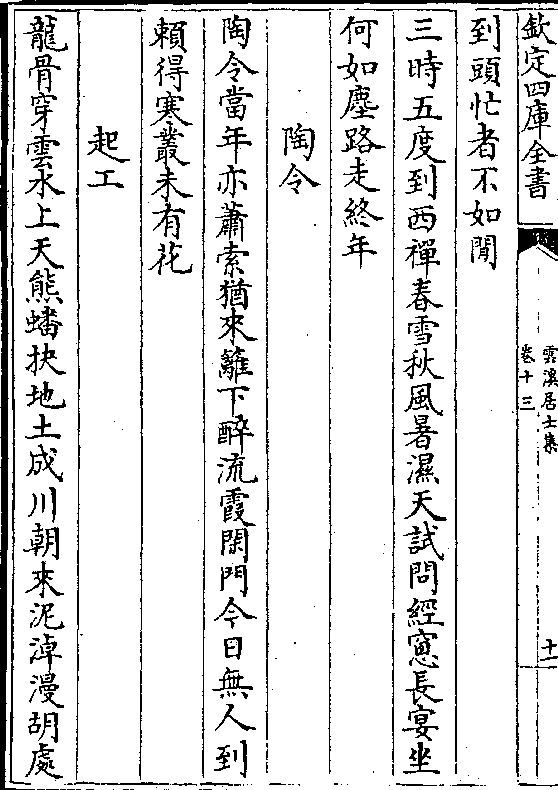 欽定四庫全書
雲溪居士集
卷十三
十一
到頭忙者不如閒
三時五度到西禪春雪秋風暑濕天試問經窻長宴坐
何如塵路走終年
陶令
陶令當年亦蕭索猶來籬下醉流霞閑門今日無人到
頼得寒叢未有花
起工
龍骨穿雲水上天熊蟠抉地土成川朝來泥淖漫胡處